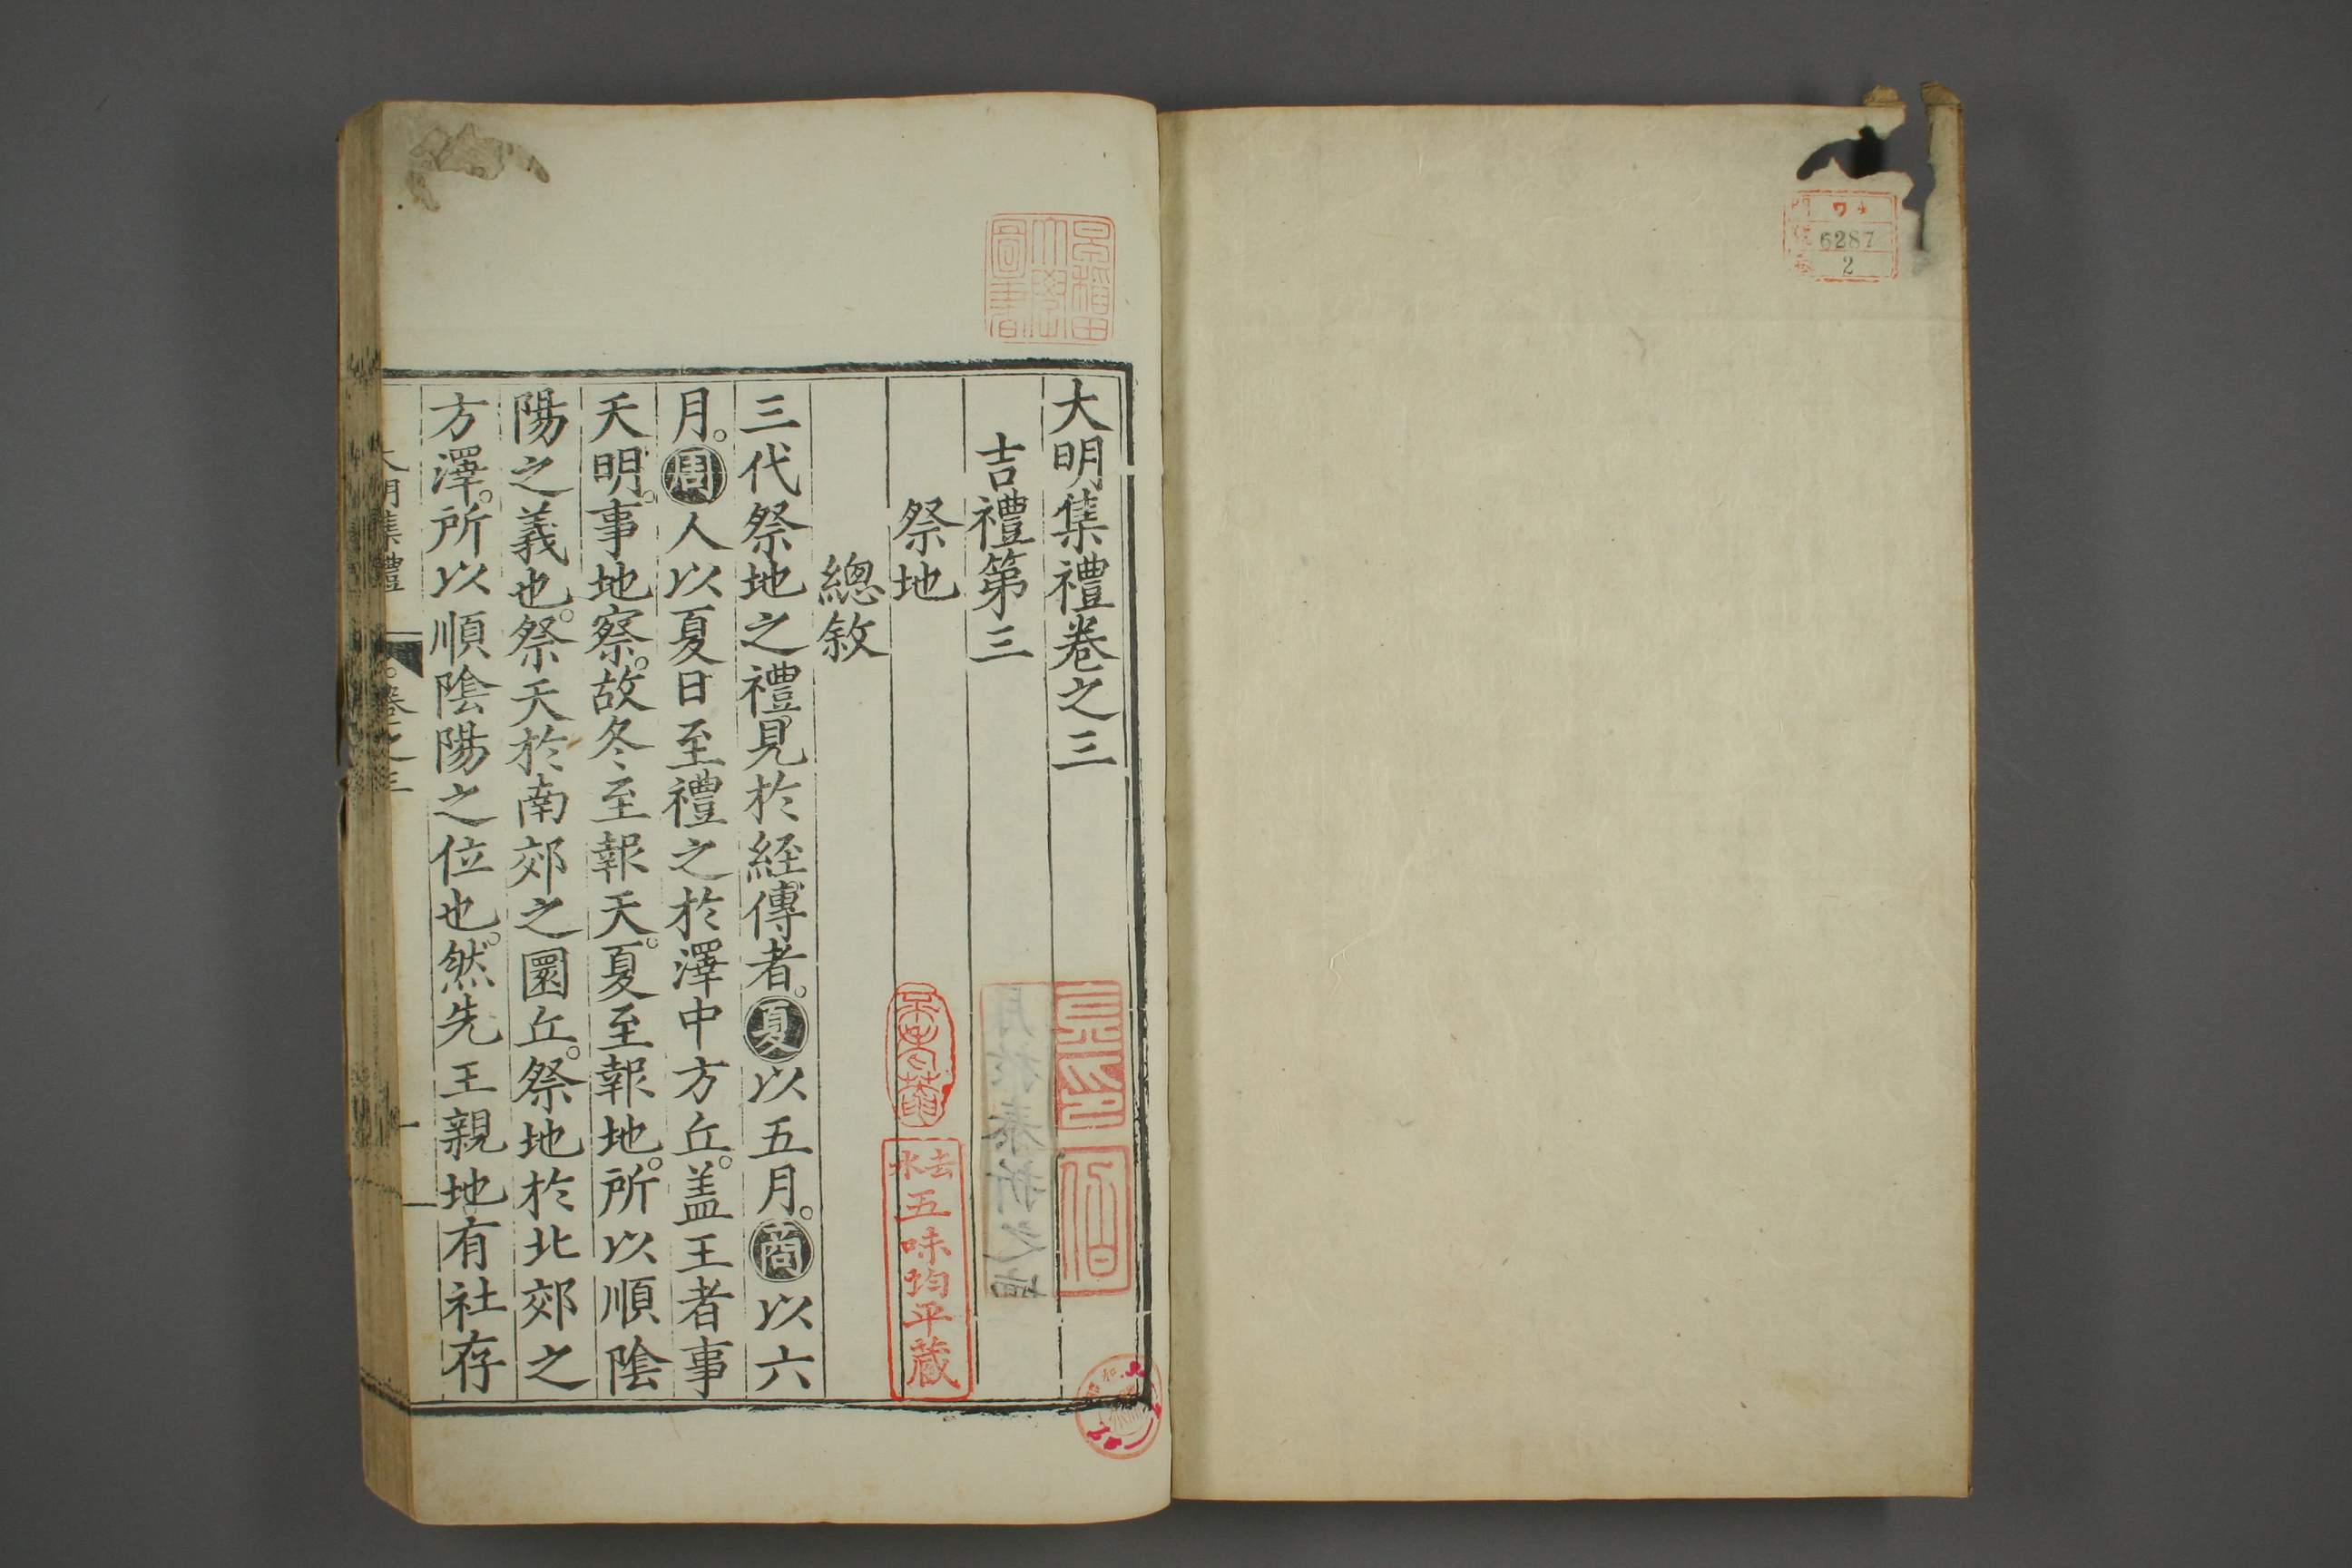 ワ4
6287
2
早稲田
大學
圖書
大明集禮卷之三
吉禮第三
祭地
總敘
三代祭地之禮見於経傳者。夏以五月。商以六
月。周人以夏日至禮之於澤中方丘。盖王者事
天明。事地察。故冬至報天。夏至報地。所以順陰
陽之義也。祭天於南郊之圜丘。祭地於北郊之
方澤。所以順陰陽之位也。然先王親地有社存
大明集禮
卷之三
一
五味均平蔵